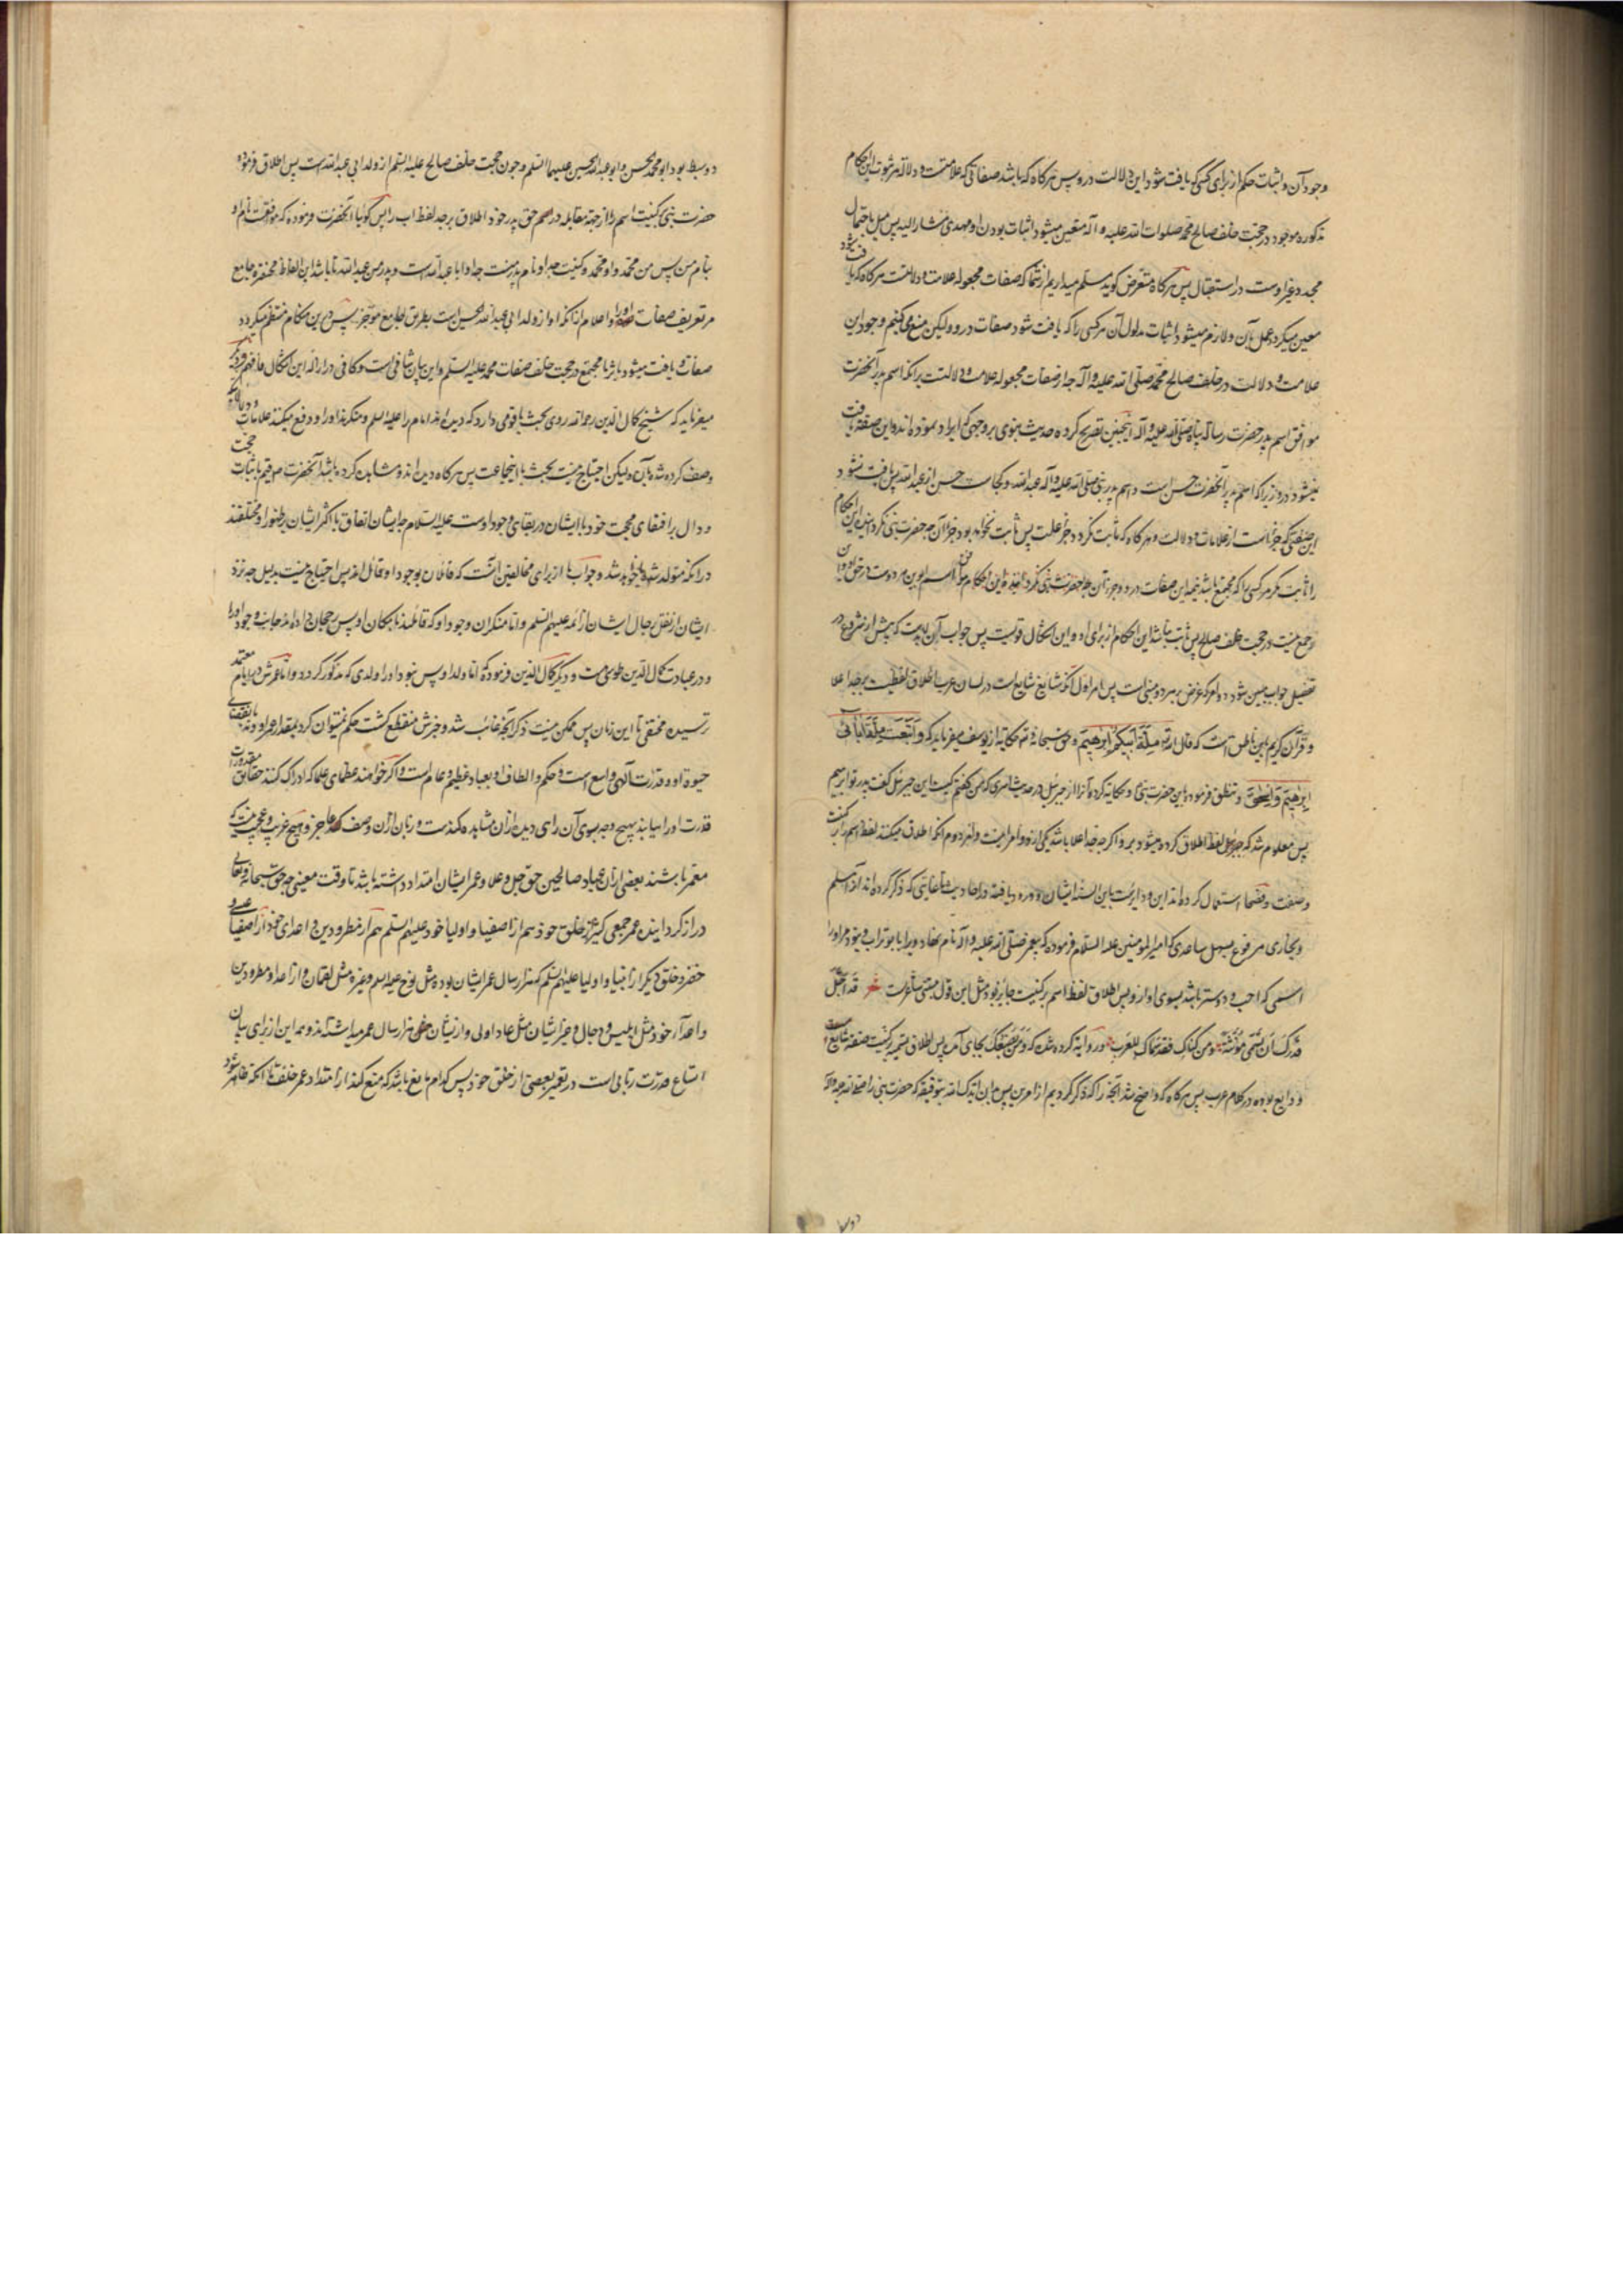 وجود آن و اثبات حکم از برای کسی که یافت شود این دلالت درو پس هرگاه که باشد صفاتی که علامتست و دلالة مر ثبوت این احکام
مذکوره موجود در حجت خلف صالح محمد صلوات الله علیه و آله متعین میشود اثبات بودن او مهدی مشار الیه پس میل باحتمال
مجدد غیر اوست در استقبال پس هرگاه معترض گوید مسلم میداریم از شما که صفات مجعوله علامت و دلالتست هرگاه که یافت شود
معین میگردد عمل بآن و لازم میشود اثبات مدلول آن هر کسی را که یافت شود صفات درو ولیکن منع می کنیم وجود این
علامت و دلالت در خلف صالح محمد صلی الله علیه و آله چه از صفات مجعوله علامت و دلالتست برانکه اسم پدر آنحضرت
موافق اسم پدر حضرت رسالة پناه صلی الله علیه و آله اینچنین تصریح کرده حدیث نبوی بر وجهی که ایراد نموده اند و این صفة یافت
نمیشود درو زیرا که اسم پدر آنحضرت حسن است و اسم پدر نبی صلی الله علیه و آله عبد الله و کجاست حسن از عبد الله پس یافت نشود
این صفتی که جزئیست از علامات و دلالت و هرگاه که ثابت نگردد جزء علت پس ثابت نخواهد بود جزا آن چه حضرت نبی نگردانیده این احکام
را ثابت مگر مر کسی را که مجتمع باشد همه این صفات درو و جزء آن
و جمع نیست در حجت خلف صالح پس ثابت نباشد این احکام از برای او و این اشکال قویست پس جواب آن لابدست که پیش از شروع در
تفصیل جواب مبین شود دو امر که غرض بر هر دو مبنی است پس امر اول آنکه شایع است در لسان عرب اطلاق لفظ اب بر جد اعلا
و قرآن کریم باین ناطق است که قال الله تعالی مِلَّةَ أَبِیکُمْ إِبْرَاهِیمَ و حق سبحانه و تعالی حکایة از یوسف میفرماید که وَاتَّبَعْتُ مِلَّةَ آبَائِی
إِبْرَاهِیمَ وَإِسْحَاقَ و تنطق فرموده باین حضرت نبی و حکایة کرده آنرا از جبرئیل در حدیث اسری که من گفتم کیست این جبرئیل گفت پدر تو ابراهیم
پس معلوم شد که لفظ اب اطلاق کرده میشود بر جد و اگر چه جد اعلا باشد یکی از دو امر اینست و امر دوم آنکه اطلاق میکنند لفظ اسم را بر کنیت
و صفت و فصحا استعمال کرده اند این و دایرست باین السنه ایشان و ورود یافته در احادیث تا غایتی که ذکر کرده اند آنرا مسلم
و بخاری مرفوع بسهل ساعدی که امیر المومنین علیه السلام فرموده که پیغمبر صلی الله علیه و آله نام نهاد ویرا بابو تراب و نبود مر او را
اسمی که احب و دوستر باشد بسوی او از و پس اطلاق لفظ اسم بر کنیت جایز بود مثل این قول متنبی شاعرست شعر قد اجلّ
قَدْرَکِ أَنْ تُسَمَّی مُؤَنَّثَةً ومن کناک فقد سماک للعرب و روایة کرده شده که وَمَنْ یَصِفْکِ بجای آمده پس اطلاق تسمیه بر کنیت و صفت شایع
و ذایع بوده در کلام عرب پس هرگاه که واضح شد آنچه را که ذکر کردیم از امرین پس بدان ایدک الله بتوفیقه که حضرت نبی را صلی الله علیه و آله
دو سبط بود ابو محمد الحسن و ابو عبد الله الحسین علیهما السلم و چون حجت خلف صالح علیه السلم از ولد ابی عبد الله است پس اطلاق فرموده
حضرت نبی بر کنیت اسم را از جهة مقابله در اسم حق پدر خود و اطلاق بر جد لفظ اب را پس گوئیا آنحضرت فرموده که موافقست نام او
بنام من پس من محمد و او محمد و کنیت جد او نام پدر منست چه او ابا عبد الله است و پدر من عبد الله تا باشد این الفاظ مختصره جامع
مر تعریف صفات او را و اعلام از آنکه او از ولد ابی عبد الله الحسین است بطریق جامع موجز پس درین هنگام منتظم میگردد
صفات و یافت میشود باسرها مجتمع در حجت خلف صفات محمد علیه السلم و این بیان شافی است و کافی در ازاله این اشکال فافهم
میفرماید که شیخ کمال الدین رحمه الله روی بحث با قومی دارد که دیده اند امام را علیه السلم و منکرند او را و دفع میکنند علامات
وصف کرده شده بآن ولیکن احتیاج نیست بحث با این جماعت پس هرگاه دیده اند و مشاهده کرده باشند آنحضرت
و دال بر اقتضای حجت خود با ایشان در بقای وجود اوست علیه السلام چه ایشان اتفاق با اکثر ایشان بر ظهور او و مختلفند
در آنکه متولد شده یا خواهد شد و جواب ما از برای مخالفین آنست که قائلان بوجود او قائل اند پس احتیاج نیست بدلیل چه نزد
ایشان از نقل رجال ایشان از ائمه علیهم السلم و اما منکران وجود او که قائلند بامکان او پس رجحان داده اند جانب وجود او را
و در عبارت کمال الدین طوسی ست و دیگر کمال الدین فرموده که اما ولد او پس نبود او را ولدی که مذکور گردد و اما عمرش در ایام معتمد
ترسیده مختفی تا این زمان پس ممکن نیست ذکر آنچه غائب شد و خبرش منقطع گشت حکم نمیتوان کرد بمقدار عمر او و نه بانقضای
حیوة او و قدرت الهی واسع است و حکم و الطاف او بعباد عظیم و عام است و اگر خواهند عظمای علما که ادراک کنند حقائق مقدورات
قدرت او را نیابند بهیچ وجه بسوی آن راهی و زبان ازان وصف عاجز و هیچ غریب و عجیب نیست که
معمر باشند بعضی ازان عباد صالحین حق جل و علا و عمر ایشان امتداد داشته باشد تا وقت معینی چه حق سبحانه و تعالی
دراز گردانیده عمر جمعی کثیر از خلق خود هم از اصفیا و اولیا خود علیهم السلم هم از مطرودین و اعدای خود از اصفیا
خضر و خلق دیگر از انبیا و اولیا علیهم السلم که هزار سال عمر ایشان بوده مثل نوح علیه السلم و غیره مثل لقمان و از اعدا و مطرودین
و اعداء خود مثل ابلیس و دجال و غیر ایشان مثل عاد اولی و از ایشان بعضی هزار سال عمر میداشته اند و همه این از برای بیان
اتساع قدرت ربانی است در تعمیر بعضی از خلق خود پس کدام مانع باشد که منع کند از امتداد عمر خلف تا آنکه ظاهر شود